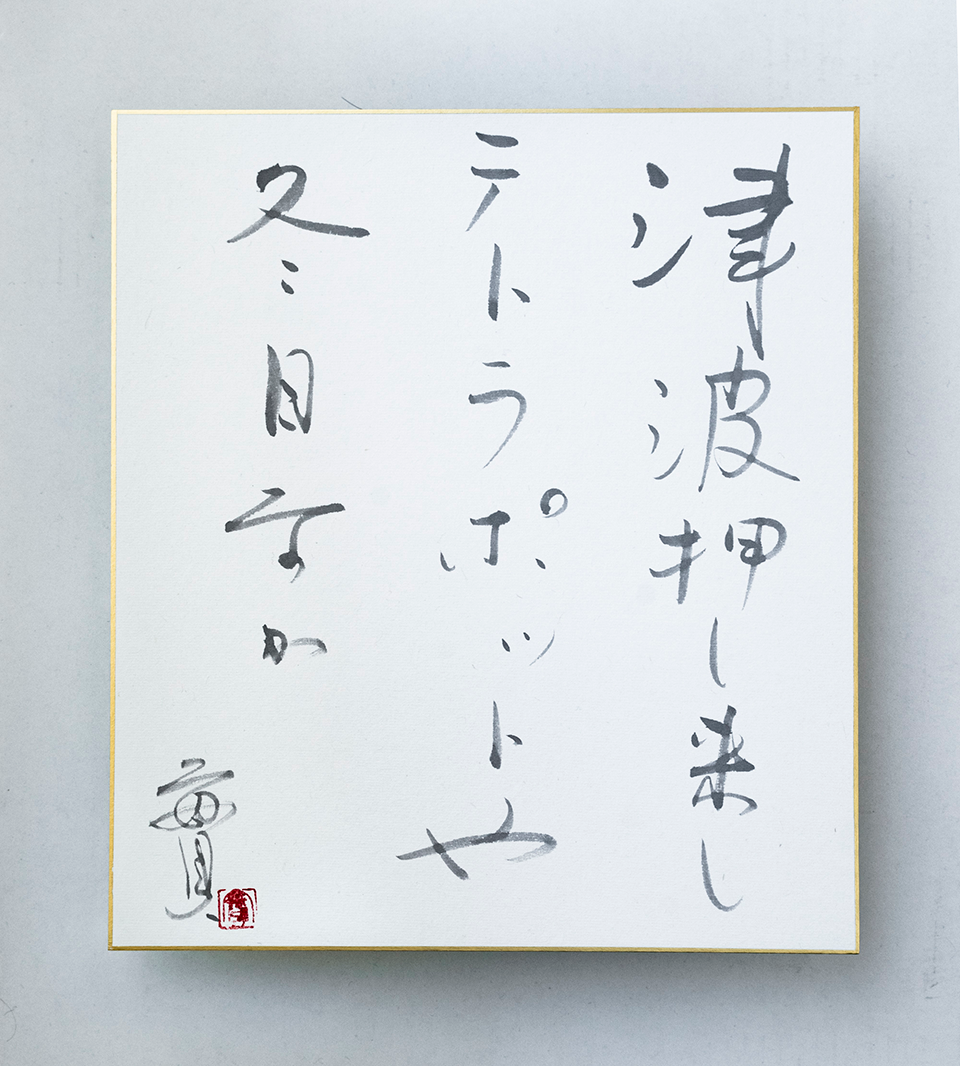 津波押し来し
テトラポットや
冬日なか
實